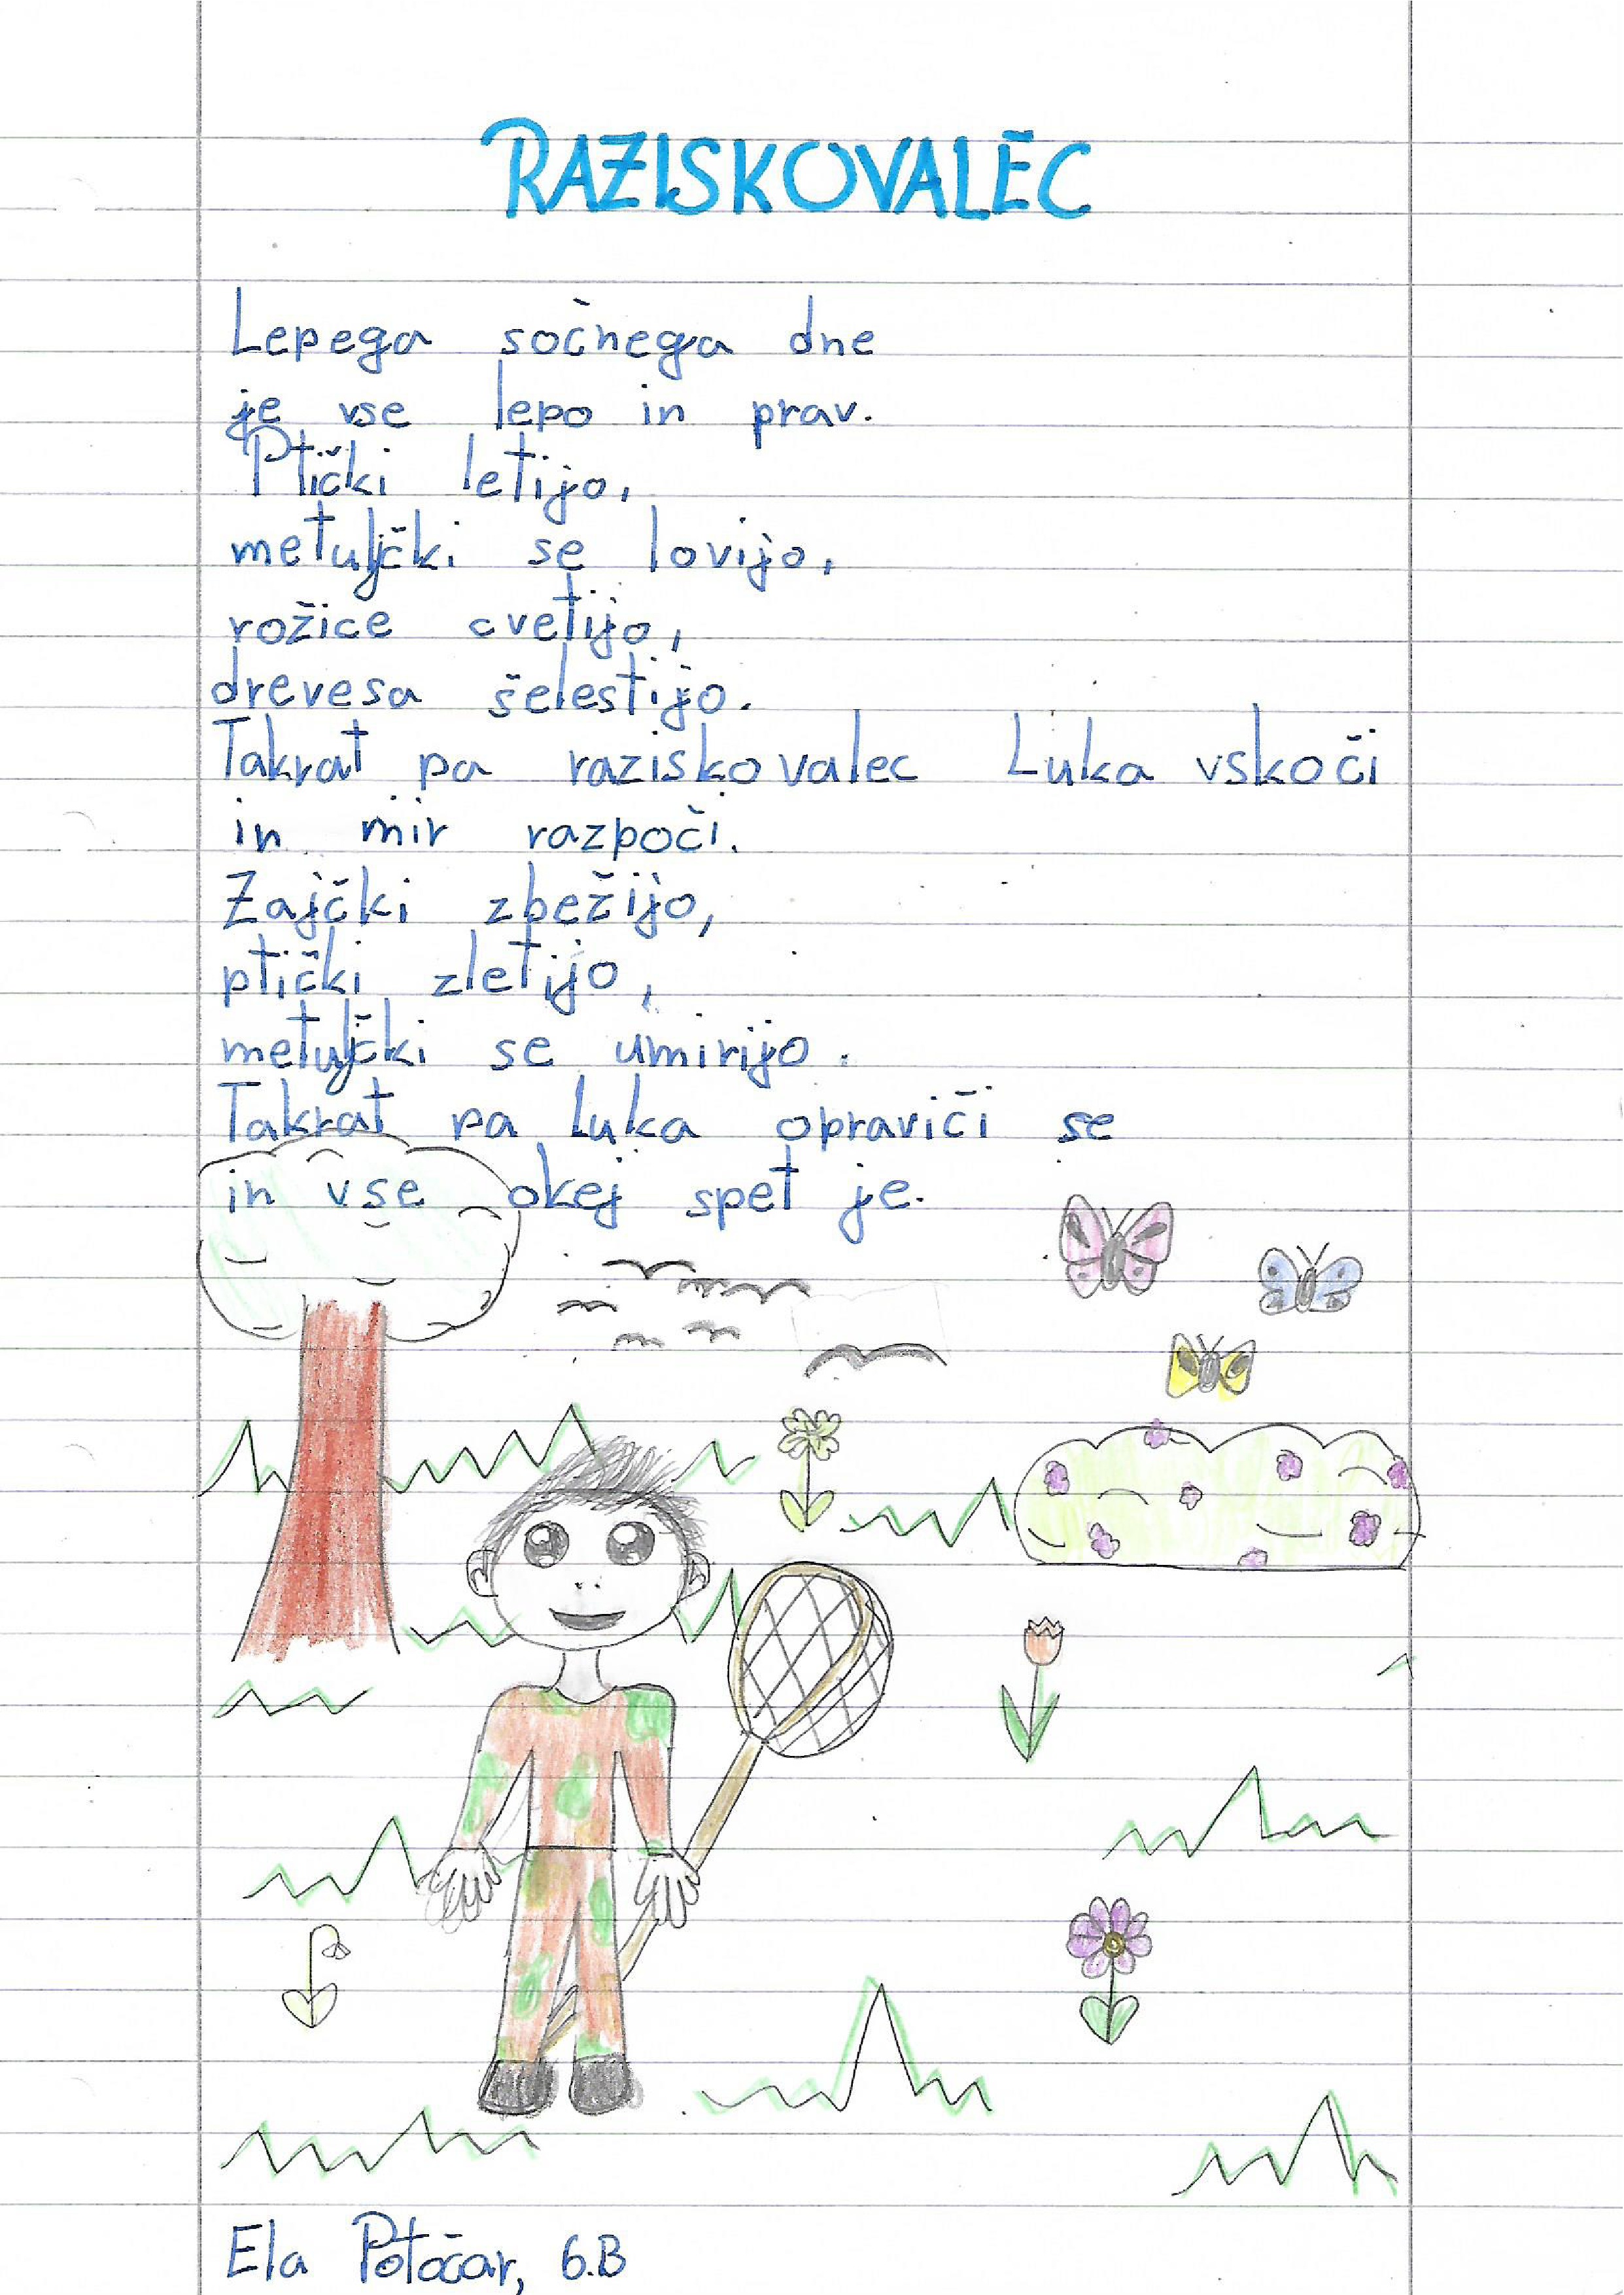 RAZISKOVALEC
Lepega sočnega dne
je vse lepo in prav.
Ptički letijo,
metuljčki se lovijo,
rožice cvetijo,
drevesa šelestijo.
Takrat pa raziskovalec Luka vskoči
in mir razpoči.
Zajčki zbežijo,
ptički zletijo,
metuljčki se umirijo.
Takrat pa Luka opraviči se
in vse okej spet je.
Ela Potočar, 6.B